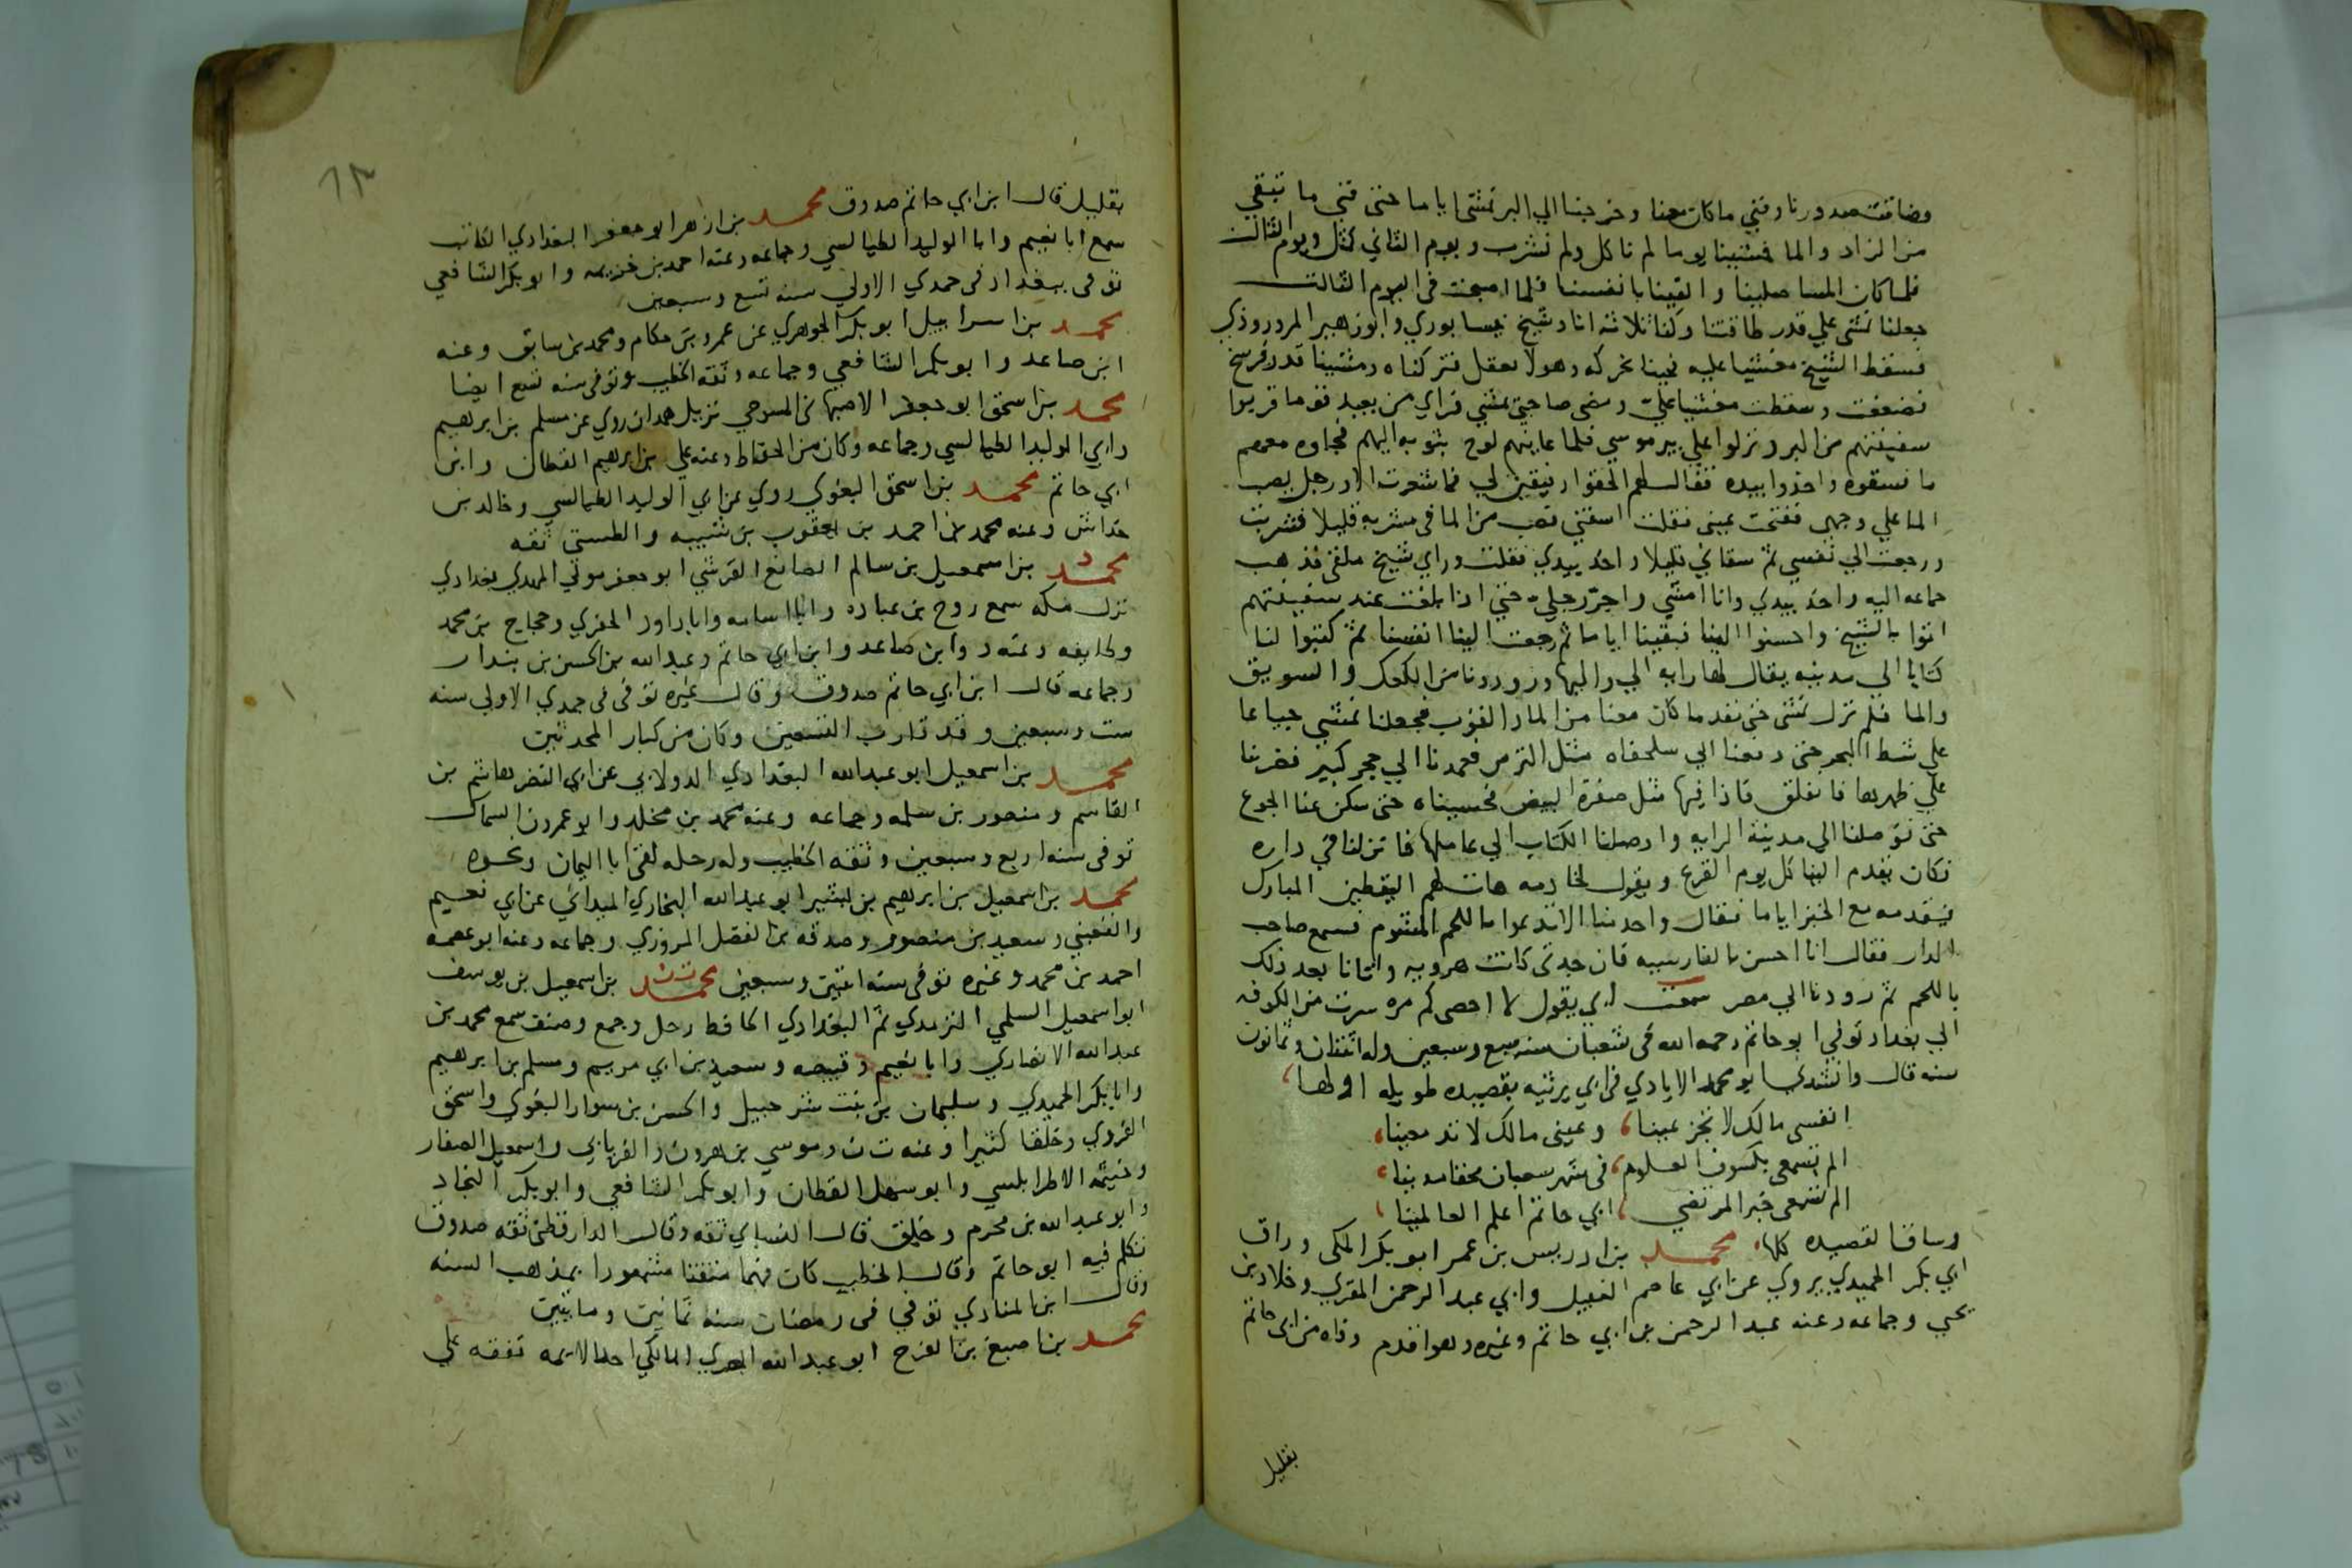 وضاقت صدورنا وفني ما كان معنا وخرجنا الي البر نمشي اياما حتى فني ما تبقي
من الزاد والما فمشينا يوما لم ناكل ولم نشرب ويوم الثاني كمثل ويوم الثالث
فلما كان المسا صلينا والقينا بانفسنا فلما اصبحت في اليوم الثالث
جعلنا نمشي علي قدر طاقتنا وكنا ثلاثه انا وشيخ نيسابوري وابو زهير المروروذي
فسقط الشيخ مغشيا عليه فجينا نحركه وهو لا يعقل فتركناه ومشينا قدر فرسخ
فضعفت وسقطت مغشيا علي ومضى صاحبي يمشي فراي من بعيد قوما قربوا
سفينتهم من البر ونزلوا علي بير موسي فلما عاينهم لوح بثوبه اليهم فجاوه معهم
ما فسقوه واخذوا بيده فقال لهم الحقوا رفيقين لي فما شعرت الا برجل يصب
الما علي وجهي ففتحت عيني فقلت اسقني فصب من الما في مشربه قليلا فشربت
ورجعت الي نفسي ثم سقاني قليلا واخذ بيدي فقلت وراي شيخ ملقى فذهب
جماعه اليه واخذ بيدي وانا امشي واجر رجلي حتى اذا بلغت عند سفينتهم
اتوا بالشيخ واحسنوا الينا فبقينا اياما ثم رجعت الينا انفسنا ثم كتبوا لنا
كتابا الي مدينه يقال لها رايه الي واليها وزودونا من الكعك والسويق
والما فلم نزل نمشي حتى نفد ما كان معنا من الما والقوت فجعلنا نمشي جياعا
علي شط البحر حتى دفعنا الي سلحفاه مثل الترس فعمدنا الي حجر كبير فضربنا
علي ظهرها فانفلق فاذا فيها مثل صفرة البيض فحسيناه حتى سكن عنا الجوع
حتى توصلنا الي مدينة الرايه واوصلنا الكتاب الي عاملها فانزلنا في داره
فكان يقدم الينا كل يوم القرع ويقول لخادمه هات لهم اليقطين المبارك
فيقدمه مع الخبز اياما فقال واحد منا الا تدعوا باللحم المشوم فسمع صاحب
الدار فقال انا احسن بالفارسيه فان جدتي كانت هرويه واتانا بعد ذلك
باللحم ثم زودنا الي مصر سمعت ابي يقول لا احصي كم مره سرت من الكوفه
الي بغداد توفي ابو حاتم رحمه الله في شعبان سنه سبع وسبعين وله اثنتان وثمانون
سنه قال وانشدني ابو محمد الايادي في ابي يرثيه بقصيده طويله اولها
انفسي مالك لا تجزعينا وعيني مالك لا تدمعينا
الم تسمعي بكسوف العلوم في شهر شعبان محقا مدينا
الم تسمعي خبر المرتضي ابي حاتم اعلم العالمينا
وساق القصيده كلها محمد بن ادريس بن عمر ابو بكر المكي وراق
ابي بكر الحميدي يروي عن ابي عاصم النبيل وابي عبد الرحمن المقري وخلاد بن
يحيي وجماعه وعنه عبد الرحمن بن ابي حاتم وغيره وهو اقدم وفاه من ابي حاتم
بقليل
٦٣
بقليل قال ابن ابي حاتم صدوق محمد بن ازهر ابو جعفر البغدادي الكاتب
سمع ابا نعيم وابا الوليد الطيالسي وجماعه وعنه احمد بن خزيمه وابو بكر الشافعي
توفي ببغداد في جمدي الاولي سنه تسع وسبعين
محمد بن اسراييل ابو بكر الجوهري عن عمرو بن حكام ومحمد بن سابق وعنه
ابن صاعد وابو بكر الشافعي وجماعه وثقه الخطيب وتوفي سنه تسع ايضا
محمد بن اسحق ابو جعفر الاصبهاني المسوحي نزيل همدان روي عن مسلم بن ابرهيم
وابي الوليد الطيالسي وجماعه وكان من الحفاظ وعنه علي بن ابرهيم القطان وابن
ابي حاتم محمد بن اسحق البغوي روي عن ابي الوليد الطيالسي وخالد بن
خداش وعنه محمد بن احمد بن يعقوب بن شيبه والطستي ثقه
محمد د بن اسمعيل بن سالم الصايغ القرشي ابو جعفر مولي المهدي بغدادي
نزل مكه سمع روح بن عباده وابا اسامه وابا داود الحفري وحجاج بن محمد
وطايفه وعنه د وابن صاعد وابن ابي حاتم وعبد الله بن الحسن بن بندار
وجماعه قال ابن ابي حاتم صدوق وقال غيره توفي في جمدي الاولي سنه
ست وسبعين وقد قارب التسعين وكان من كبار المحدثين
محمد بن اسمعيل ابو عبد الله البغدادي الدولابي عن ابي النضر هاشم بن
القاسم ومنصور بن سلمه وجماعه وعنه محمد بن مخلد وابو عمرو بن السماك
توفي سنه اربع وسبعين وثقه الخطيب وله رحله لقي ابا اليمان ونحوه
محمد بن اسمعيل بن ابرهيم بن بشير ابو عبد الله البخاري الميداني عن ابي نعيم
والقعنبي وسعيد بن منصور وصدقه بن الفضل المروزي وجماعه وعنه ابو عصمه
احمد بن محمد وغيره توفي سنه اثنتين وسبعين محمد ت ن بن اسمعيل بن يوسف
ابو اسمعيل السلمي الترمدي ثم البغدادي الحافظ رحل وجمع وصنف سمع محمد بن
عبد الله الانصاري وابا نعيم وقبيصه وسعيد بن ابي مريم ومسلم بن ابرهيم
وابا بكر الحميدي وسليمان بن بنت شرحبيل والحسن بن سوار البغوي واسحق
الفروي وخلقا كثيرا وعنه ت ن وموسي بن هرون والفريابي واسمعيل الصفار
وخيثمه الاطرابلسي وابو سهل القطان وابو بكر الشافعي وابو بكر النجاد
وابو عبد الله بن محرم وخلق قال النساي ثقه وقال الدارقطني ثقه صدوق
تكلم فيه ابو حاتم وقال الخطيب كان فهما متقنا مشهورا بمذهب السنه
وقال ابن المنادي توفي في رمضان سنه ثمانين ومايتين
محمد بن اصبغ بن الفرج ابو عبد الله المصري المالكي احد الايمه تفقه علي